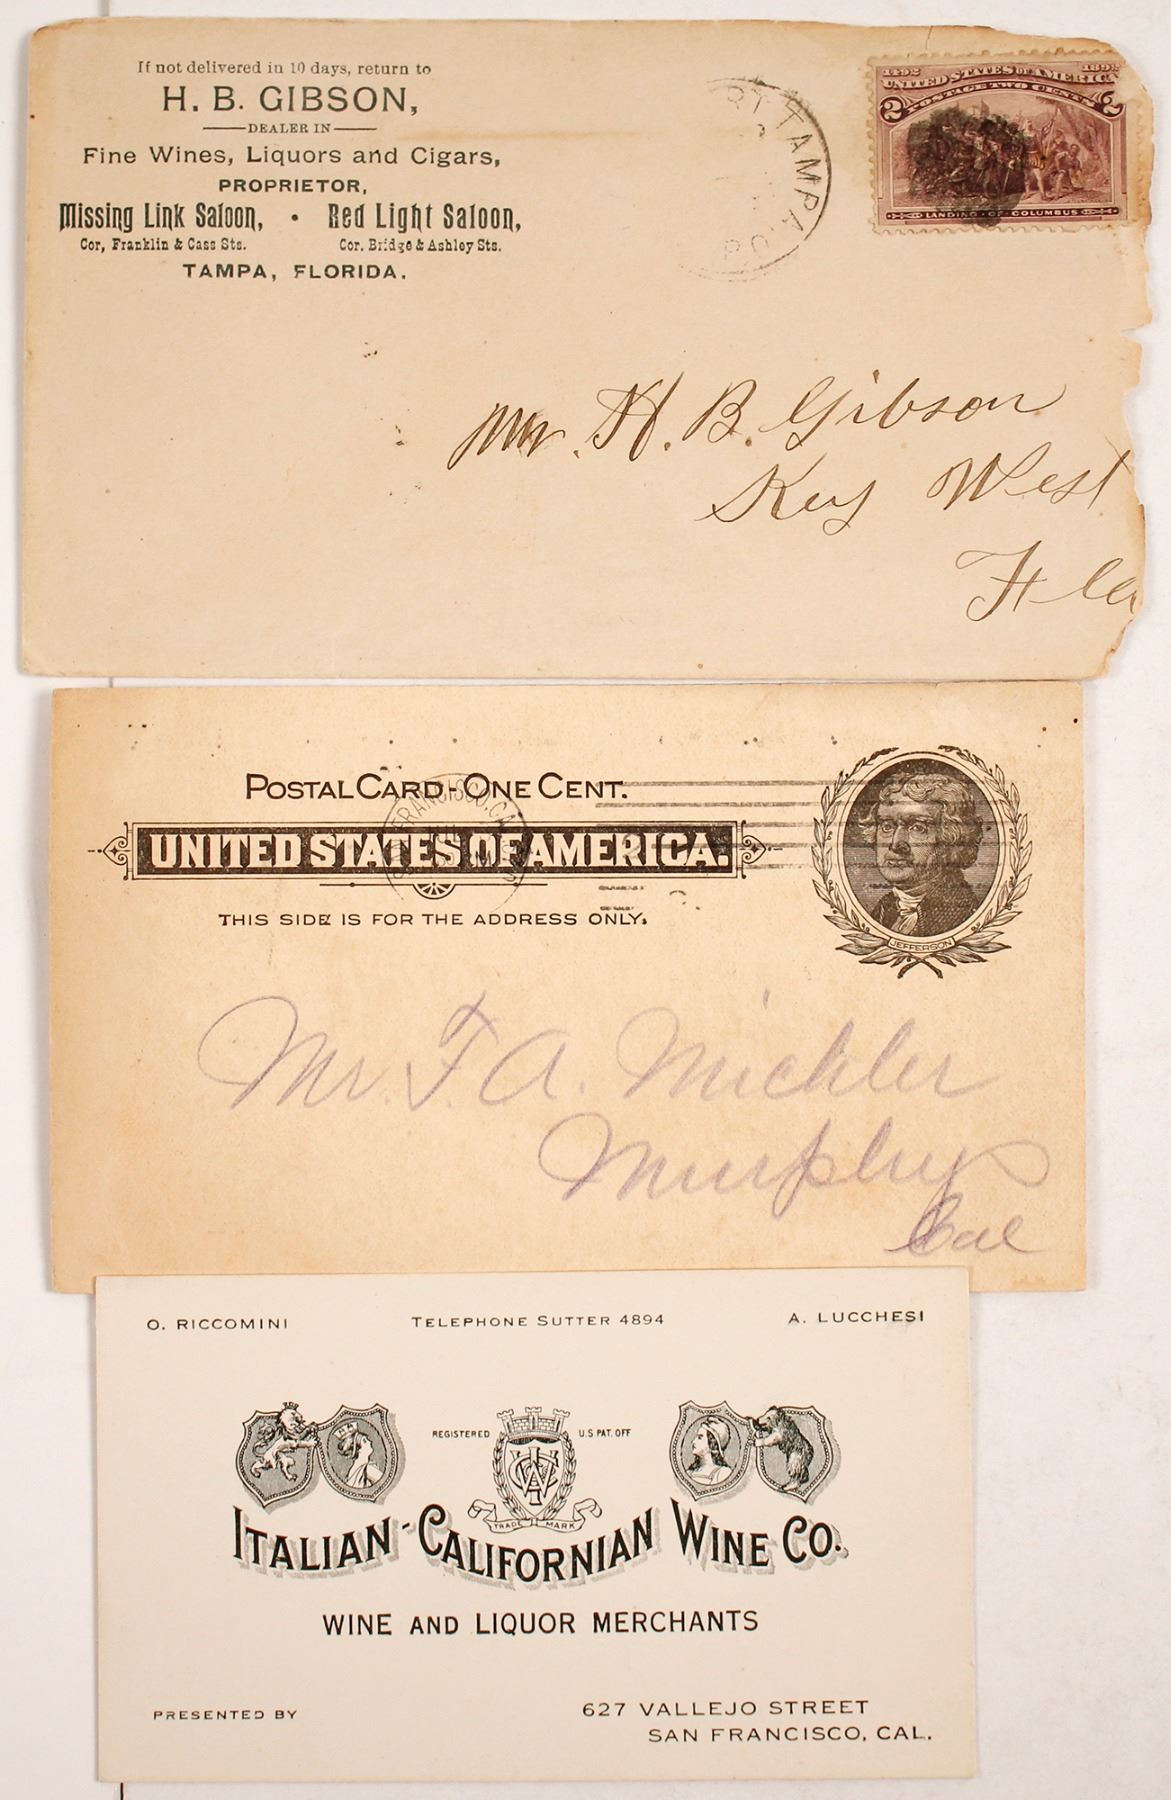 If not delivered in 10 days, return to
H. B. GIBSON,
DEALER IN
Fine Wines, Liquors and Cigars,
PROPRIETOR,
Missing Link Saloon, • Red Light Saloon,
Cor, Franklin & Cass Sts. Cor. Bridge & Ashley Sts.
TAMPA, FLORIDA.
TAMPA
1492 1892
UNITED STATES OF AMERICA
POSTAGE TWO CENTS
2 2
LANDING OF COLUMBUS
Mr. H. B. Gibson
Key West
Fla
POSTAL CARD - ONE CENT.
UNITED STATES OF AMERICA.
FRANCISCO, CAL
THIS SIDE IS FOR THE ADDRESS ONLY.
JEFFERSON
Mr. F. A. Mickler
Murphys
Cal
O. RICCOMINI TELEPHONE SUTTER 4894 A. LUCCHESI
REGISTERED U.S. PAT. OFF
TRADE MARK
ITALIAN-CALIFORNIAN WINE CO.
WINE AND LIQUOR MERCHANTS
PRESENTED BY
627 VALLEJO STREET
SAN FRANCISCO, CAL.